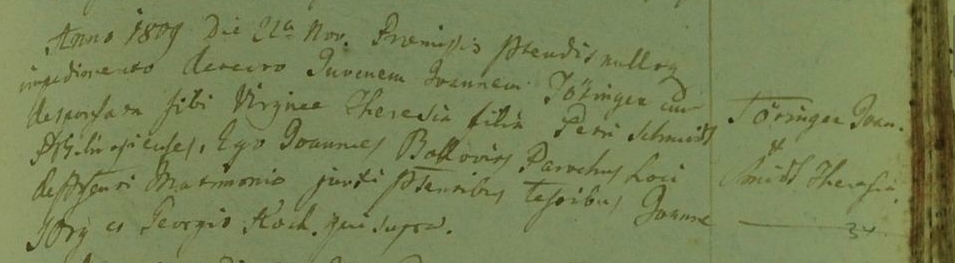 Anno 1809 Die 21a Nov. Premissis ptendis nulloq
impedimento detecto Juvenem Joannem Töringer cum
desponsata sibi Virgine Theresia filia Petri Schmidt
Ego Joannes Parochus Loci
Matrimonio junxi ptentibus Testibus Joanne
et Georgio Koch. qui supra.
Töringer Joan.
et
Smidt Theresia.
34